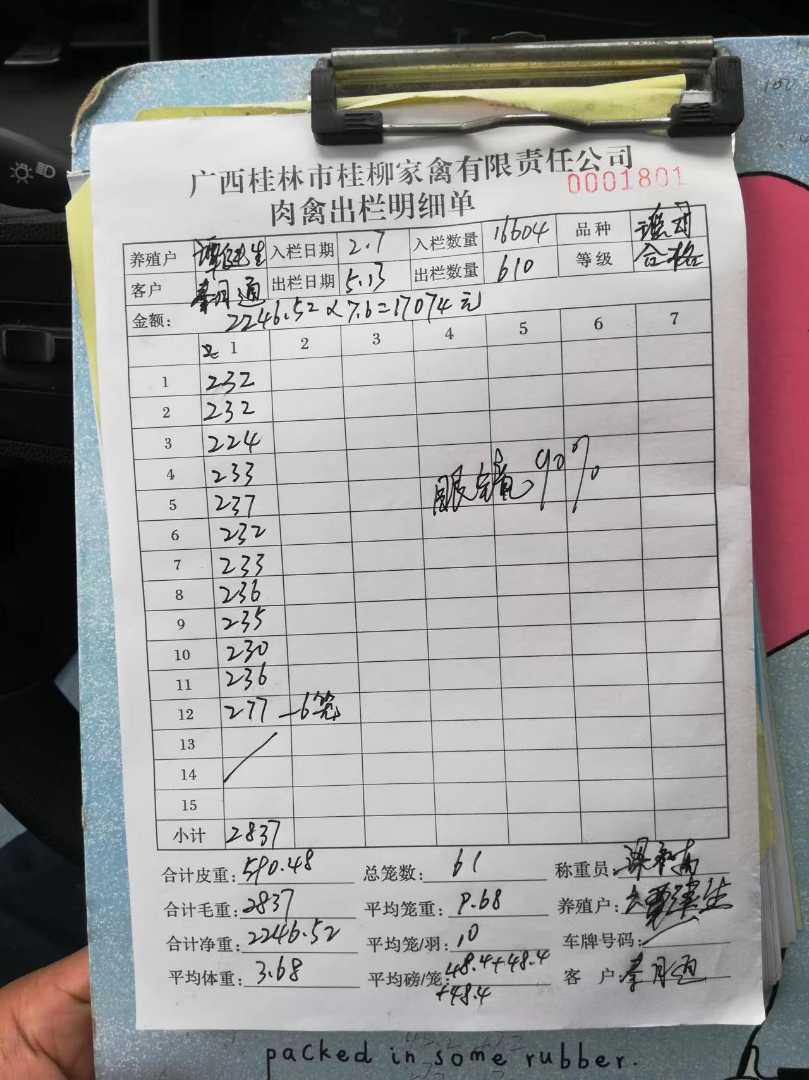 广西桂林市桂柳家禽有限责任公司
0001801
肉禽出栏明细单
养殖户 入栏日期 2.7 入栏数量 16604 品种
客户 秦月通 出栏日期 5.13 出栏数量 610 等级 合格
金额: 2246.52×7.6=17074元
1 2 3 4 5 6 7
1 232
2 232
3 224
4 233
5 237
6 232
7 233
8 236
9 235
10 230
11 236
12 277 —6笼
13
14
15
眼 90%
小计 2837
合计皮重: 590.48 总笼数: 61 称重员:
合计毛重: 2837 平均笼重: 9.68 养殖户:
合计净重: 2246.52 平均笼/羽: 10 车牌号码:
平均体重: 3.68 平均磅/笼: 48.4+48.4 客户: 秦月通
+48.4
packed in some rubber.